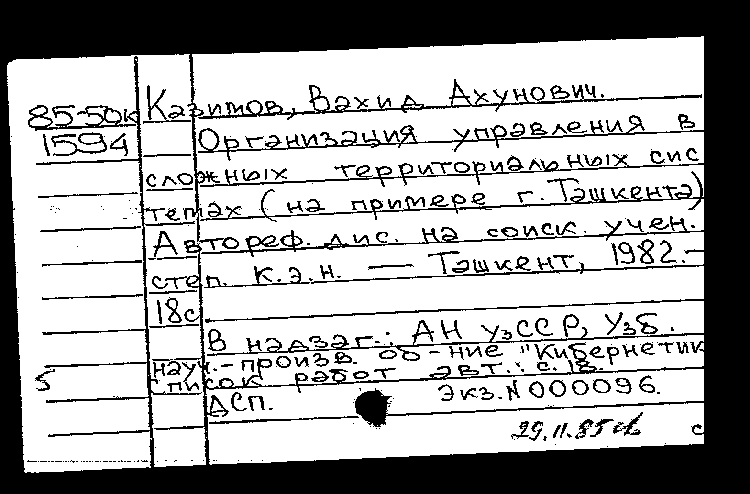 85-50к Казимов, Вахид Ахунович.
1594 Организация управления в
сложных территориальных сис
темах (на примере г. Ташкента)
Автореф. дис. на соиск. учен.
степ. к.э.н. — Ташкент, 1982.-
18с.
В надзаг.: АН УзССР, Узб.
науч.-произв. об-ние "Кибернетик
5 Список работ авт.: с. 18.
ДСП. Экз. N 000096.
29.11.85 с